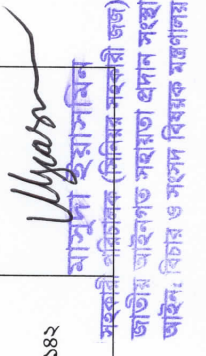 মাসুদা ইয়াসমিন
সহকারী পরিচালক (সিনিয়র সহকারী জজ)
জাতীয় আইনগত সহায়তা প্রদান সংস্থা
আইন, বিচার ও সংসদ বিষয়ক মন্ত্রণালয়
১৪২